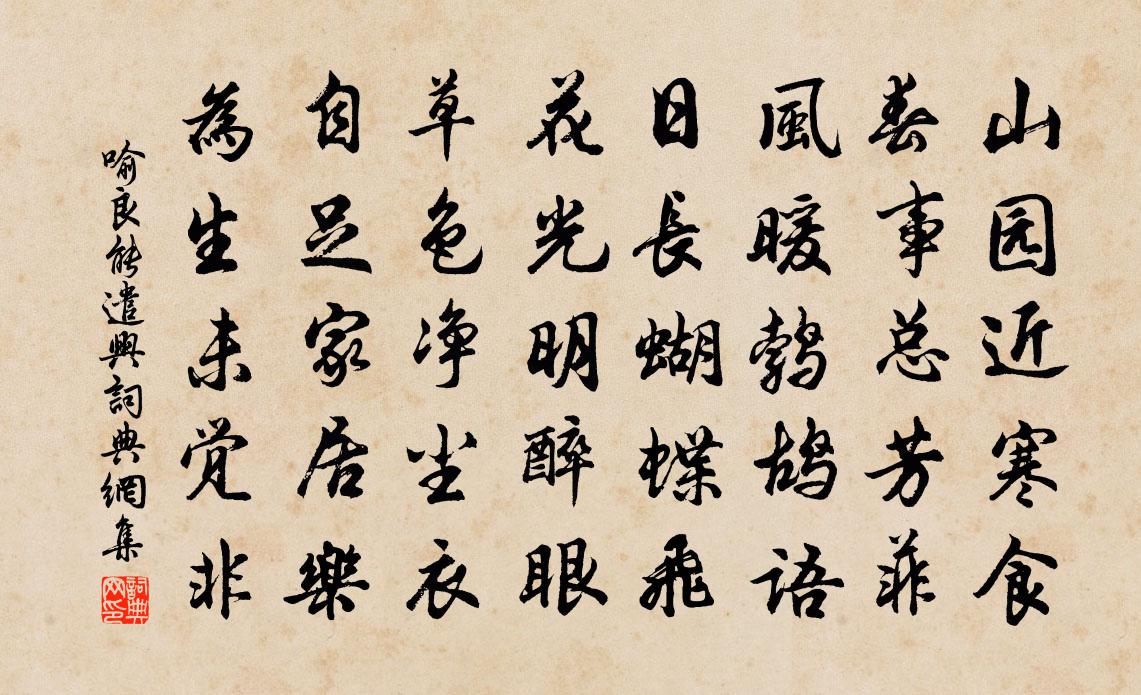 山园近寒食
春事总芳菲
風暖鹁鸪語
日長蝴蝶飛
花光明醉眼
草色净尘衣
自足家居樂
為生未觉非
喻良能遣興詞典網集
詞典网印